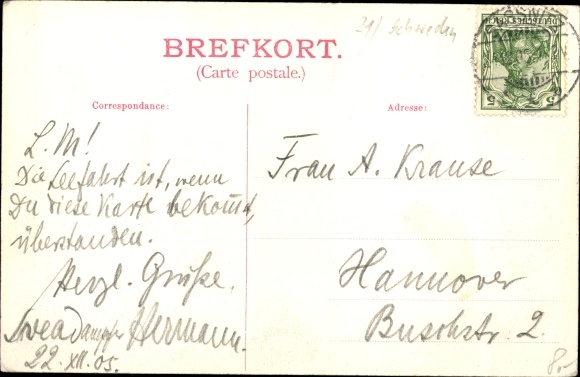 21/ Schweden
BREFKORT.
(Carte postale.)
Correspondance:
Adresse:
L. M!
Die Seefahrt ist, wenn
Du diese Karte bekomst,
überstanden.
Herzl. Grüße.
Svea Dampfer Hermann.
22. XII. 05.
Frau A. Krause
Hannover
Buschstr. 2.
DEUTSCHES REICH
5 5
8,-